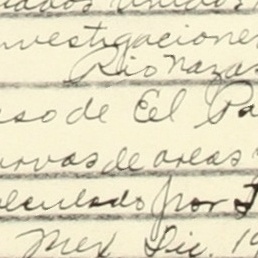 Unidos
nvestigaciones
Rio Nazas
so de El Pa
urvas de areas
alculado por I
Mex Dic. 19